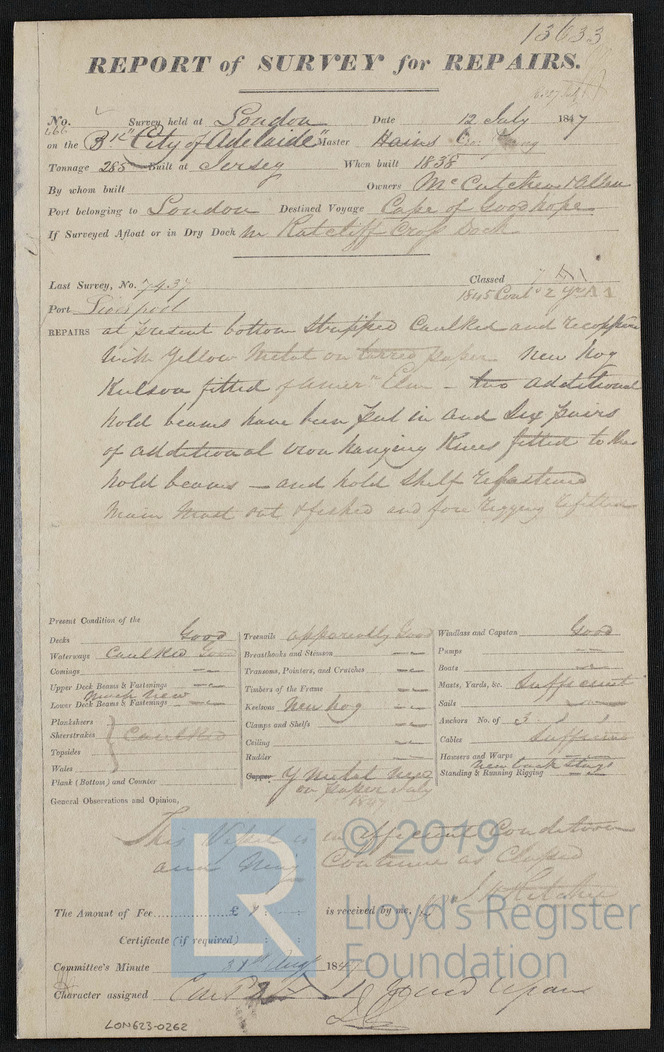 13633
REPORT of SURVEY for REPAIRS.
No. 666 Survey held at London Date 12 July 1847
on the Bk "City of Adelaide" Master Hains
Tonnage 285 Built at Jersey When built 1838
By whom built Owners
Port belonging to London Destined Voyage Cape of Good hope
If Surveyed Afloat or in Dry Dock in Ratcliff Cross Dock
Last Survey, No. 7437 Classed
Port Liverpool 1845 Contd 2 yrs A1
REPAIRS at present bottom stripped Caulked and recoppered
with Yellow Metal on tarred paper New hog
Kelson fitted of Amern Elm - two additional
hold beams have been put in and Six pairs
of additional iron hanging Knees fitted to the
hold beams - and hold Shelf refastened
Main Mast out & fished and fore rigging refitted
Present Condition of the
Decks Good
Waterways Caulked Good
Comings
Upper Deck Beams & Fastenings
much new
Lower Deck Beams & Fastenings
Plankshears
Sheerstrakes Caulked
Topsides
Wales
Plank (Bottom) and Counter
Treenails apparently Good
Breasthooks and Stemson
Transoms, Pointers, and Crutches
Timbers of the Frame
Keelsons New hog
Clamps and Shelfs
Ceiling
Rudder
Copper Y Metal New
on paper July
1847
Windlass and Capstan Good
Pumps
Boats
Masts, Yards, &c. Sufficient
Sails
Anchors No. of 3 1 1
Cables Sufficient
Hawsers and Warps
New back Stays
Standing & Running Rigging
General Observations and Opinion,
This Vessel is in efficient Condition
and May Continue as Classed
The Amount of Fee £ 1 : is received by me,
Certificate (if required)
Committee's Minute 31st Augt 1847
Character assigned
LON623-0262
© 2019
LR
Lloyd's Register
Foundation